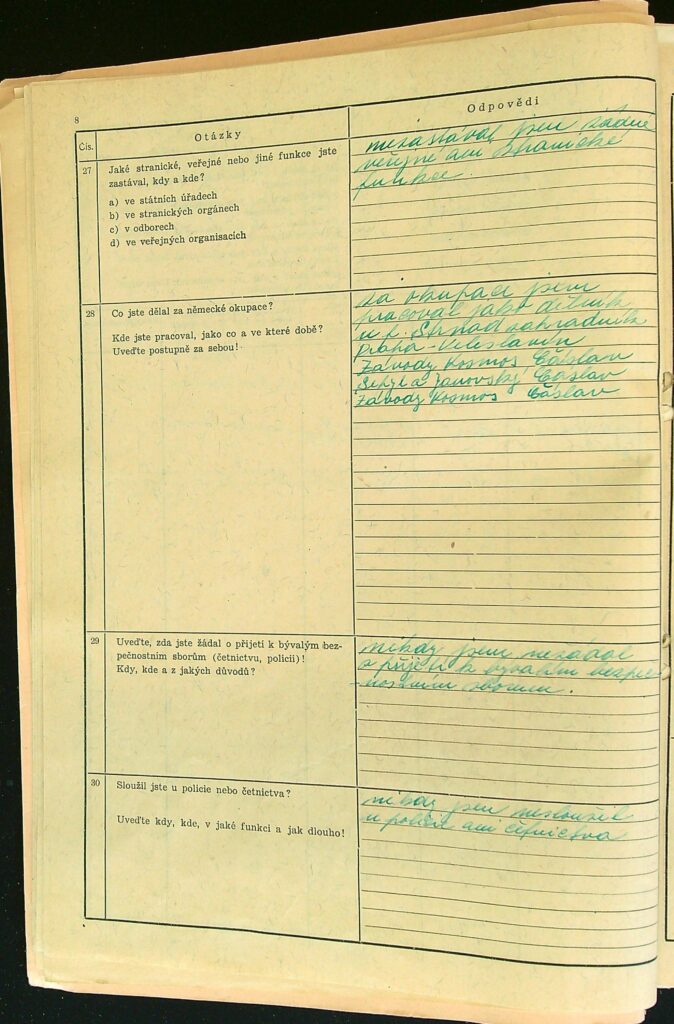 8
Čís.
Otázky
Odpovědi
27
Jaké stranické, veřejné nebo jiné funkce jste
zastával, kdy a kde?
a) ve státních úřadech
b) ve stranických orgánech
c) v odborech
d) ve veřejných organisacích
nezastával jsem žádné
veřejné ani stranické
funkce.
28
Co jste dělal za německé okupace?
Kde jste pracoval, jako co a ve které době?
Uveďte postupně za sebou!
Za okupace jsem
pracoval jako dělník
u zahradník
Praha - Veleslavín
Závody Kosmos Čáslav
a Janovský Čáslav
Závody Kosmos Čáslav
29
Uveďte, zda jste žádal o přijetí k bývalým bez-
pečnostním sborům (četnictvu, policii)!
Kdy, kde a z jakých důvodů?
nikdy jsem nežádal
o přijetí k bývalým bezpeč-
nostním sborům.
30
Sloužil jste u policie nebo četnictva?
Uveďte kdy, kde, v jaké funkci a jak dlouho!
nikdy jsem nesloužil
u policie ani četnictva